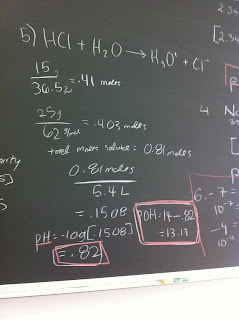 5) HCl + H₂O → H₃O⁺ + Cl⁻
15g
36.5 = .41 moles
25g
62 g/mol = .403 moles
total moles solute = 0.81 moles
0.81 moles
5.4 L
= .1508
pH = -log[.1508]
= .82
POH: 14 - .82
= 13.17
2.34
[2.34
P
4 No
arity
6. - 7 =
10⁻⁷ =
-4
10⁻⁴